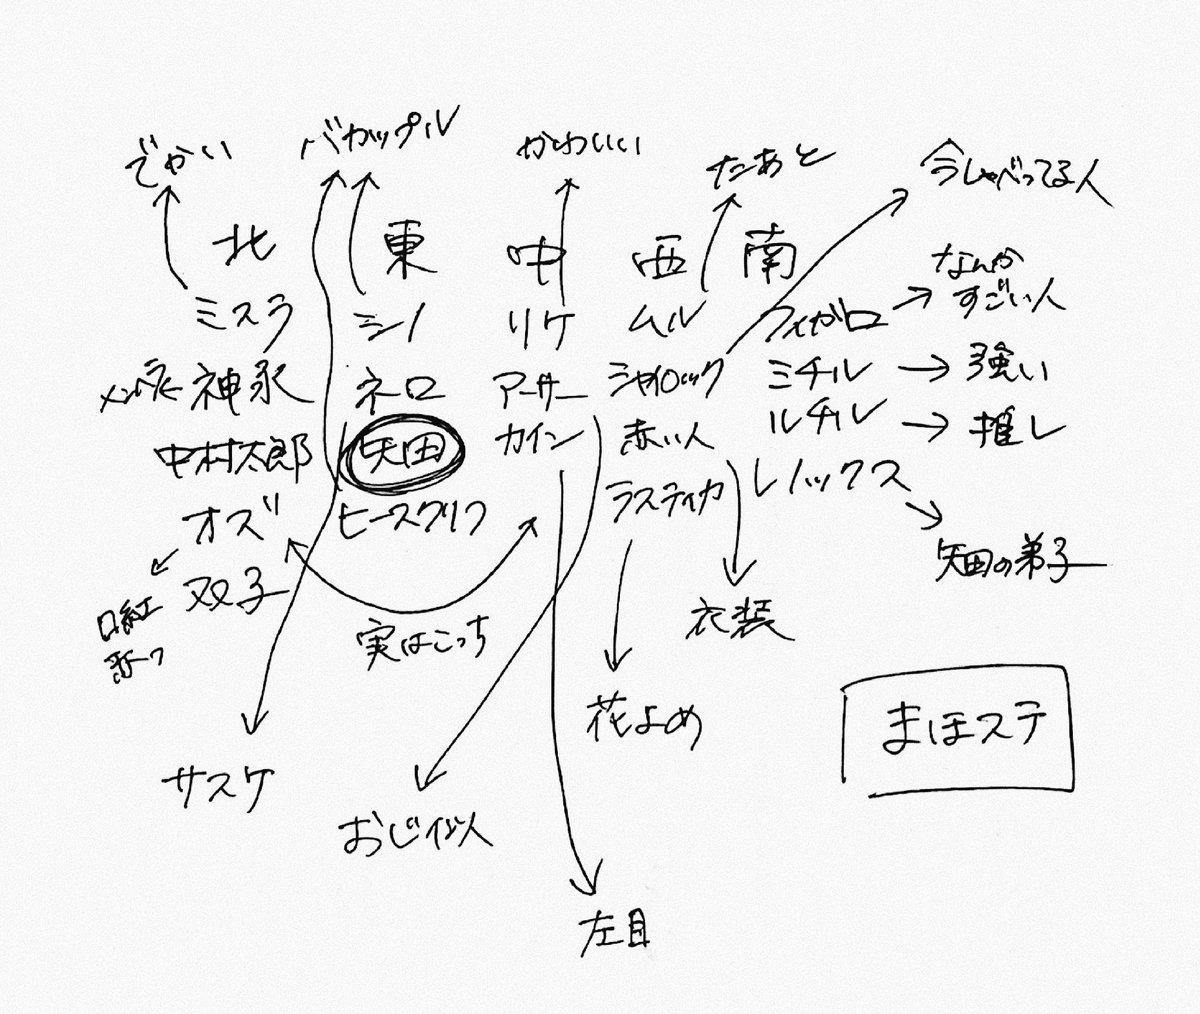 でかい
バカップル
かわいい
たあと
今しゃべってる人
北
東
中
西
南
なんか
すごい人
ミスラ
シノ
リケ
ムル
フィガロ
神永
ネロ
アーサー
シャイロック
ミチル
強い
中村太郎
矢田
カイン
赤い人
ルチル
推し
オズ
ヒースクリフ
ラスティカ
レノックス
双子
口紅
実はこっち
衣装
矢田の弟子
花よめ
まほステ
サスケ
おじ似
左目